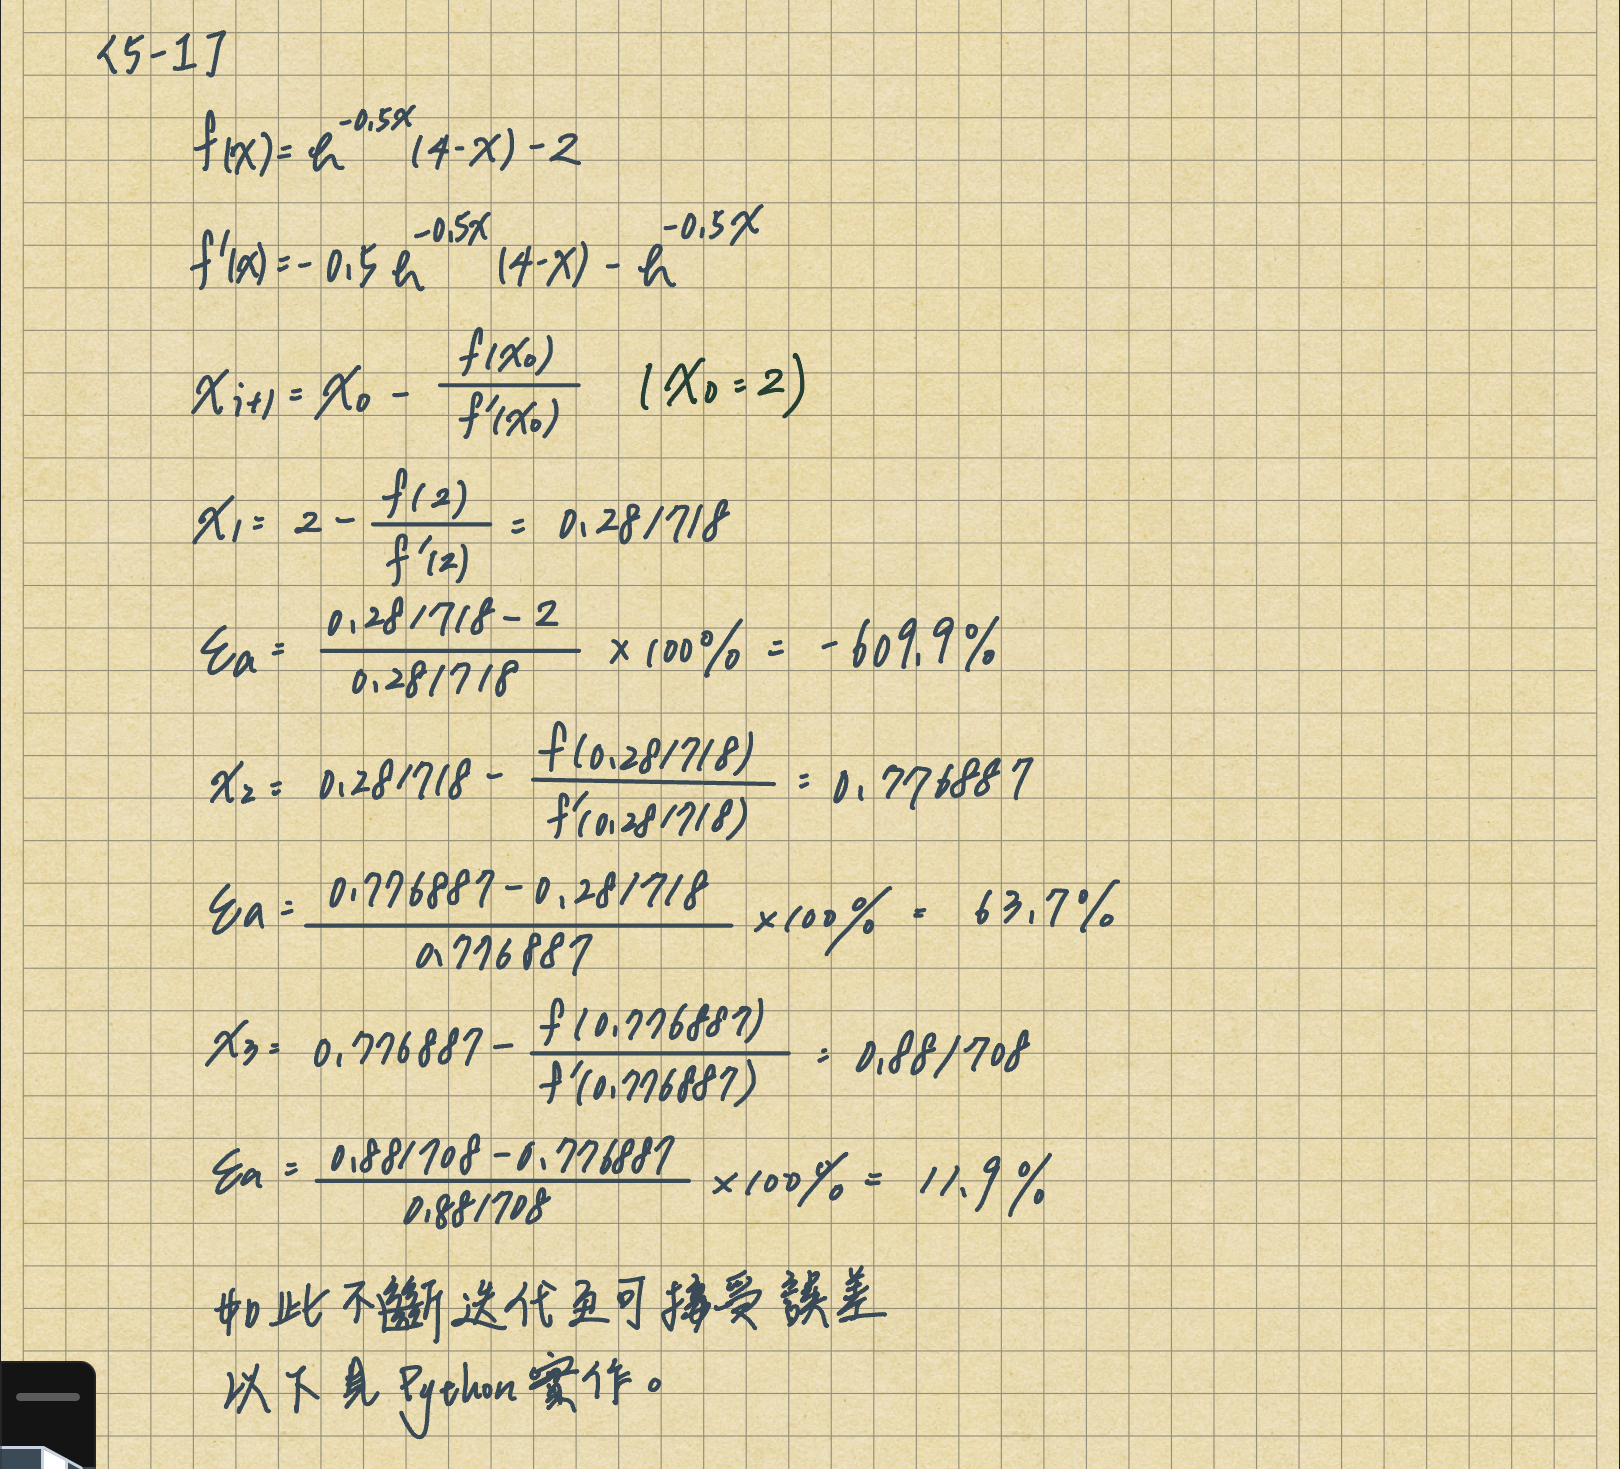 <5-1]
f(x) = e^{-0.5x} (4-x) - 2
f'(x) = -0.5 e^{-0.5x} (4-x) - e^{-0.5x}
x_{i+1} = x_0 - \frac{f(x_0)}{f'(x_0)} (x_0 = 2)
x_1 = 2 - \frac{f(2)}{f'(2)} = 0.281718
ε_a = \frac{0.281718 - 2}{0.281718} × 100% = -609.9%
x_2 = 0.281718 - \frac{f(0.281718)}{f'(0.281718)} = 0.776887
ε_a = \frac{0.776887 - 0.281718}{0.776887} × 100% = 63.7%
x_3 = 0.776887 - \frac{f(0.776887)}{f'(0.776887)} = 0.881708
ε_a = \frac{0.881708 - 0.776887}{0.881708} × 100% = 11.9%
如此不斷迭代至可接受誤差
以下見 Python 實作。